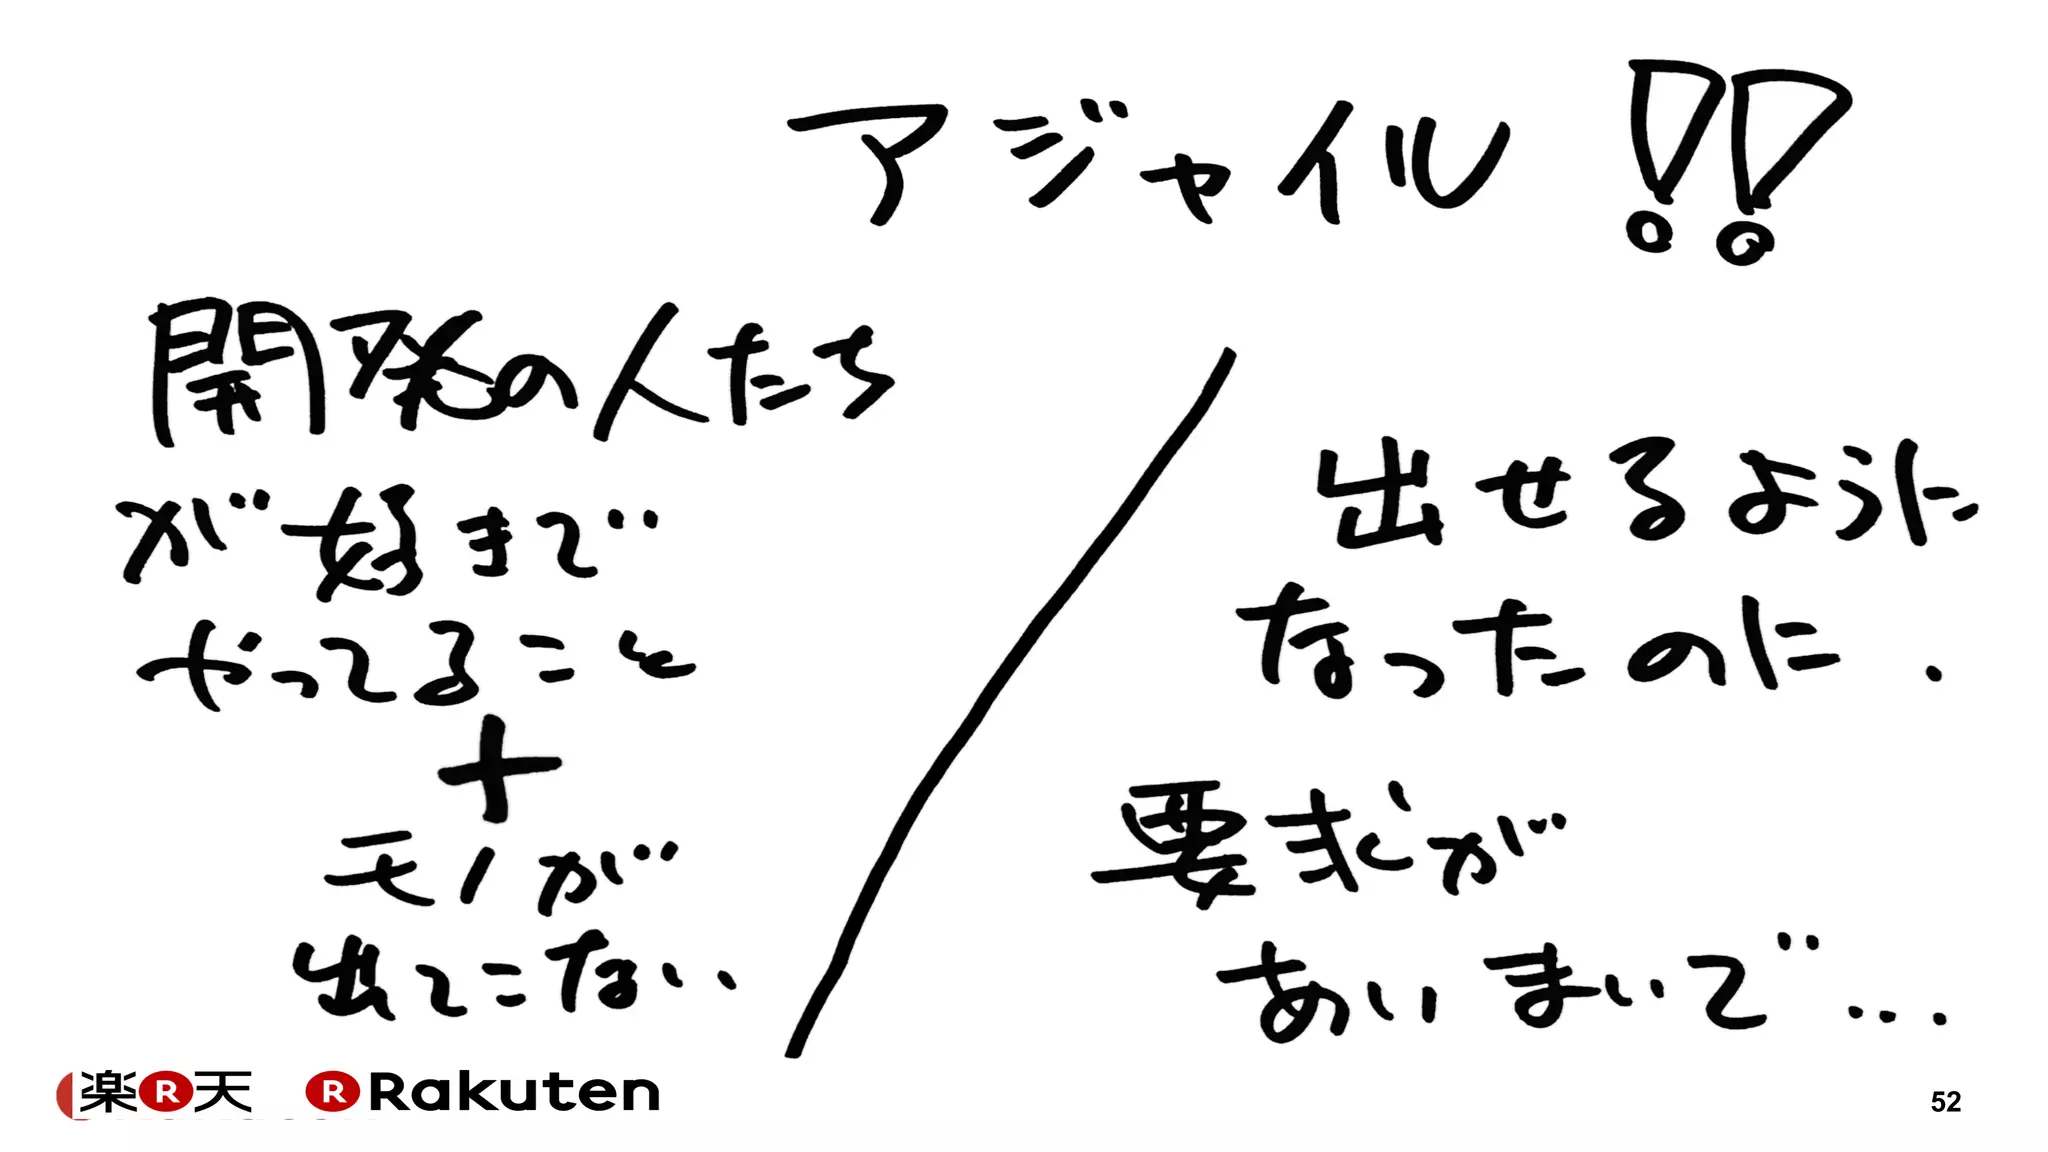 アジャイル!!
開発の人たち
が好きで
やってること
+
モノが
出てこない
出せるように
なったのに.
要求が
あいまいで...
楽R天 R Rakuten
52